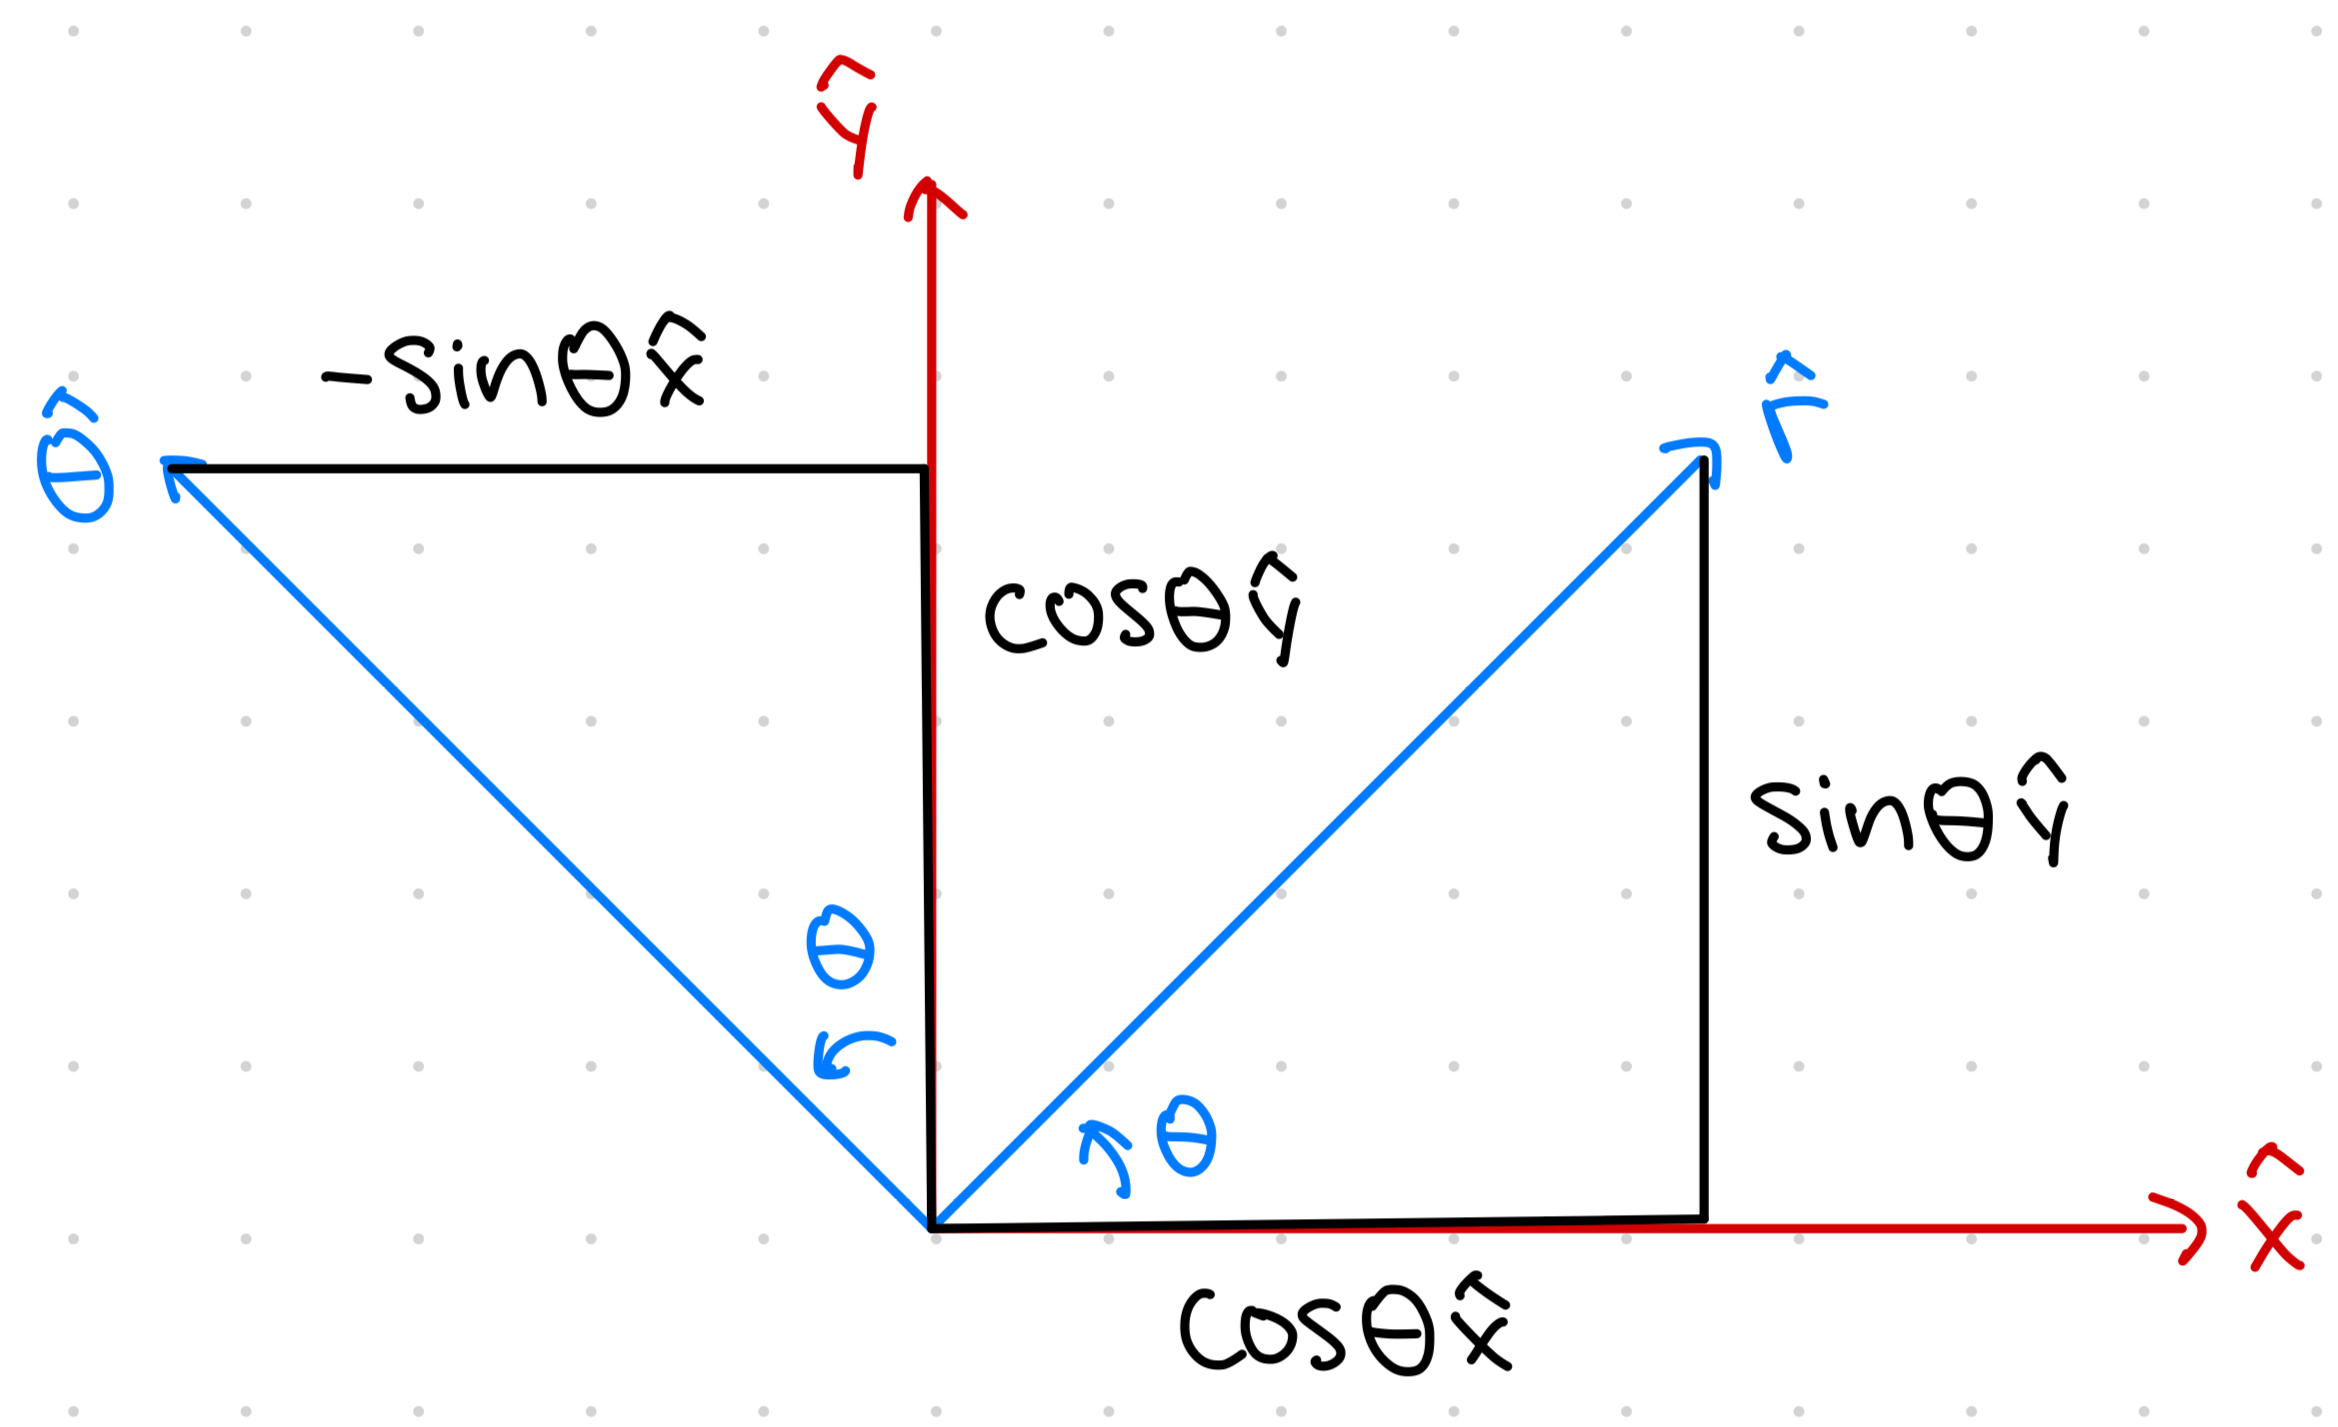 ŷ
-sinθx̂
r̂
θ̂
cosθŷ
sinθŷ
θ
θ
x̂
cosθx̂